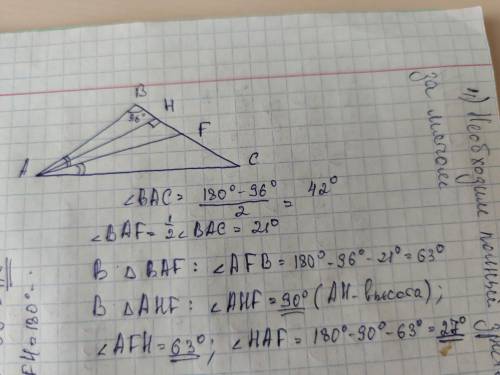 B
H
96°
F
A
C
∠BAC = (180° - 96°)/2 = 42°
∠BAF = 1/2 ∠BAC = 21°
В △BAF: ∠AFB = 180° - 96° - 21° = 63°
В △AHF: ∠AHF = 90° (AH - высота);
∠AFH = 63°; ∠HAF = 180° - 90° - 63° = 27°
11) Необходим полный
за мячом